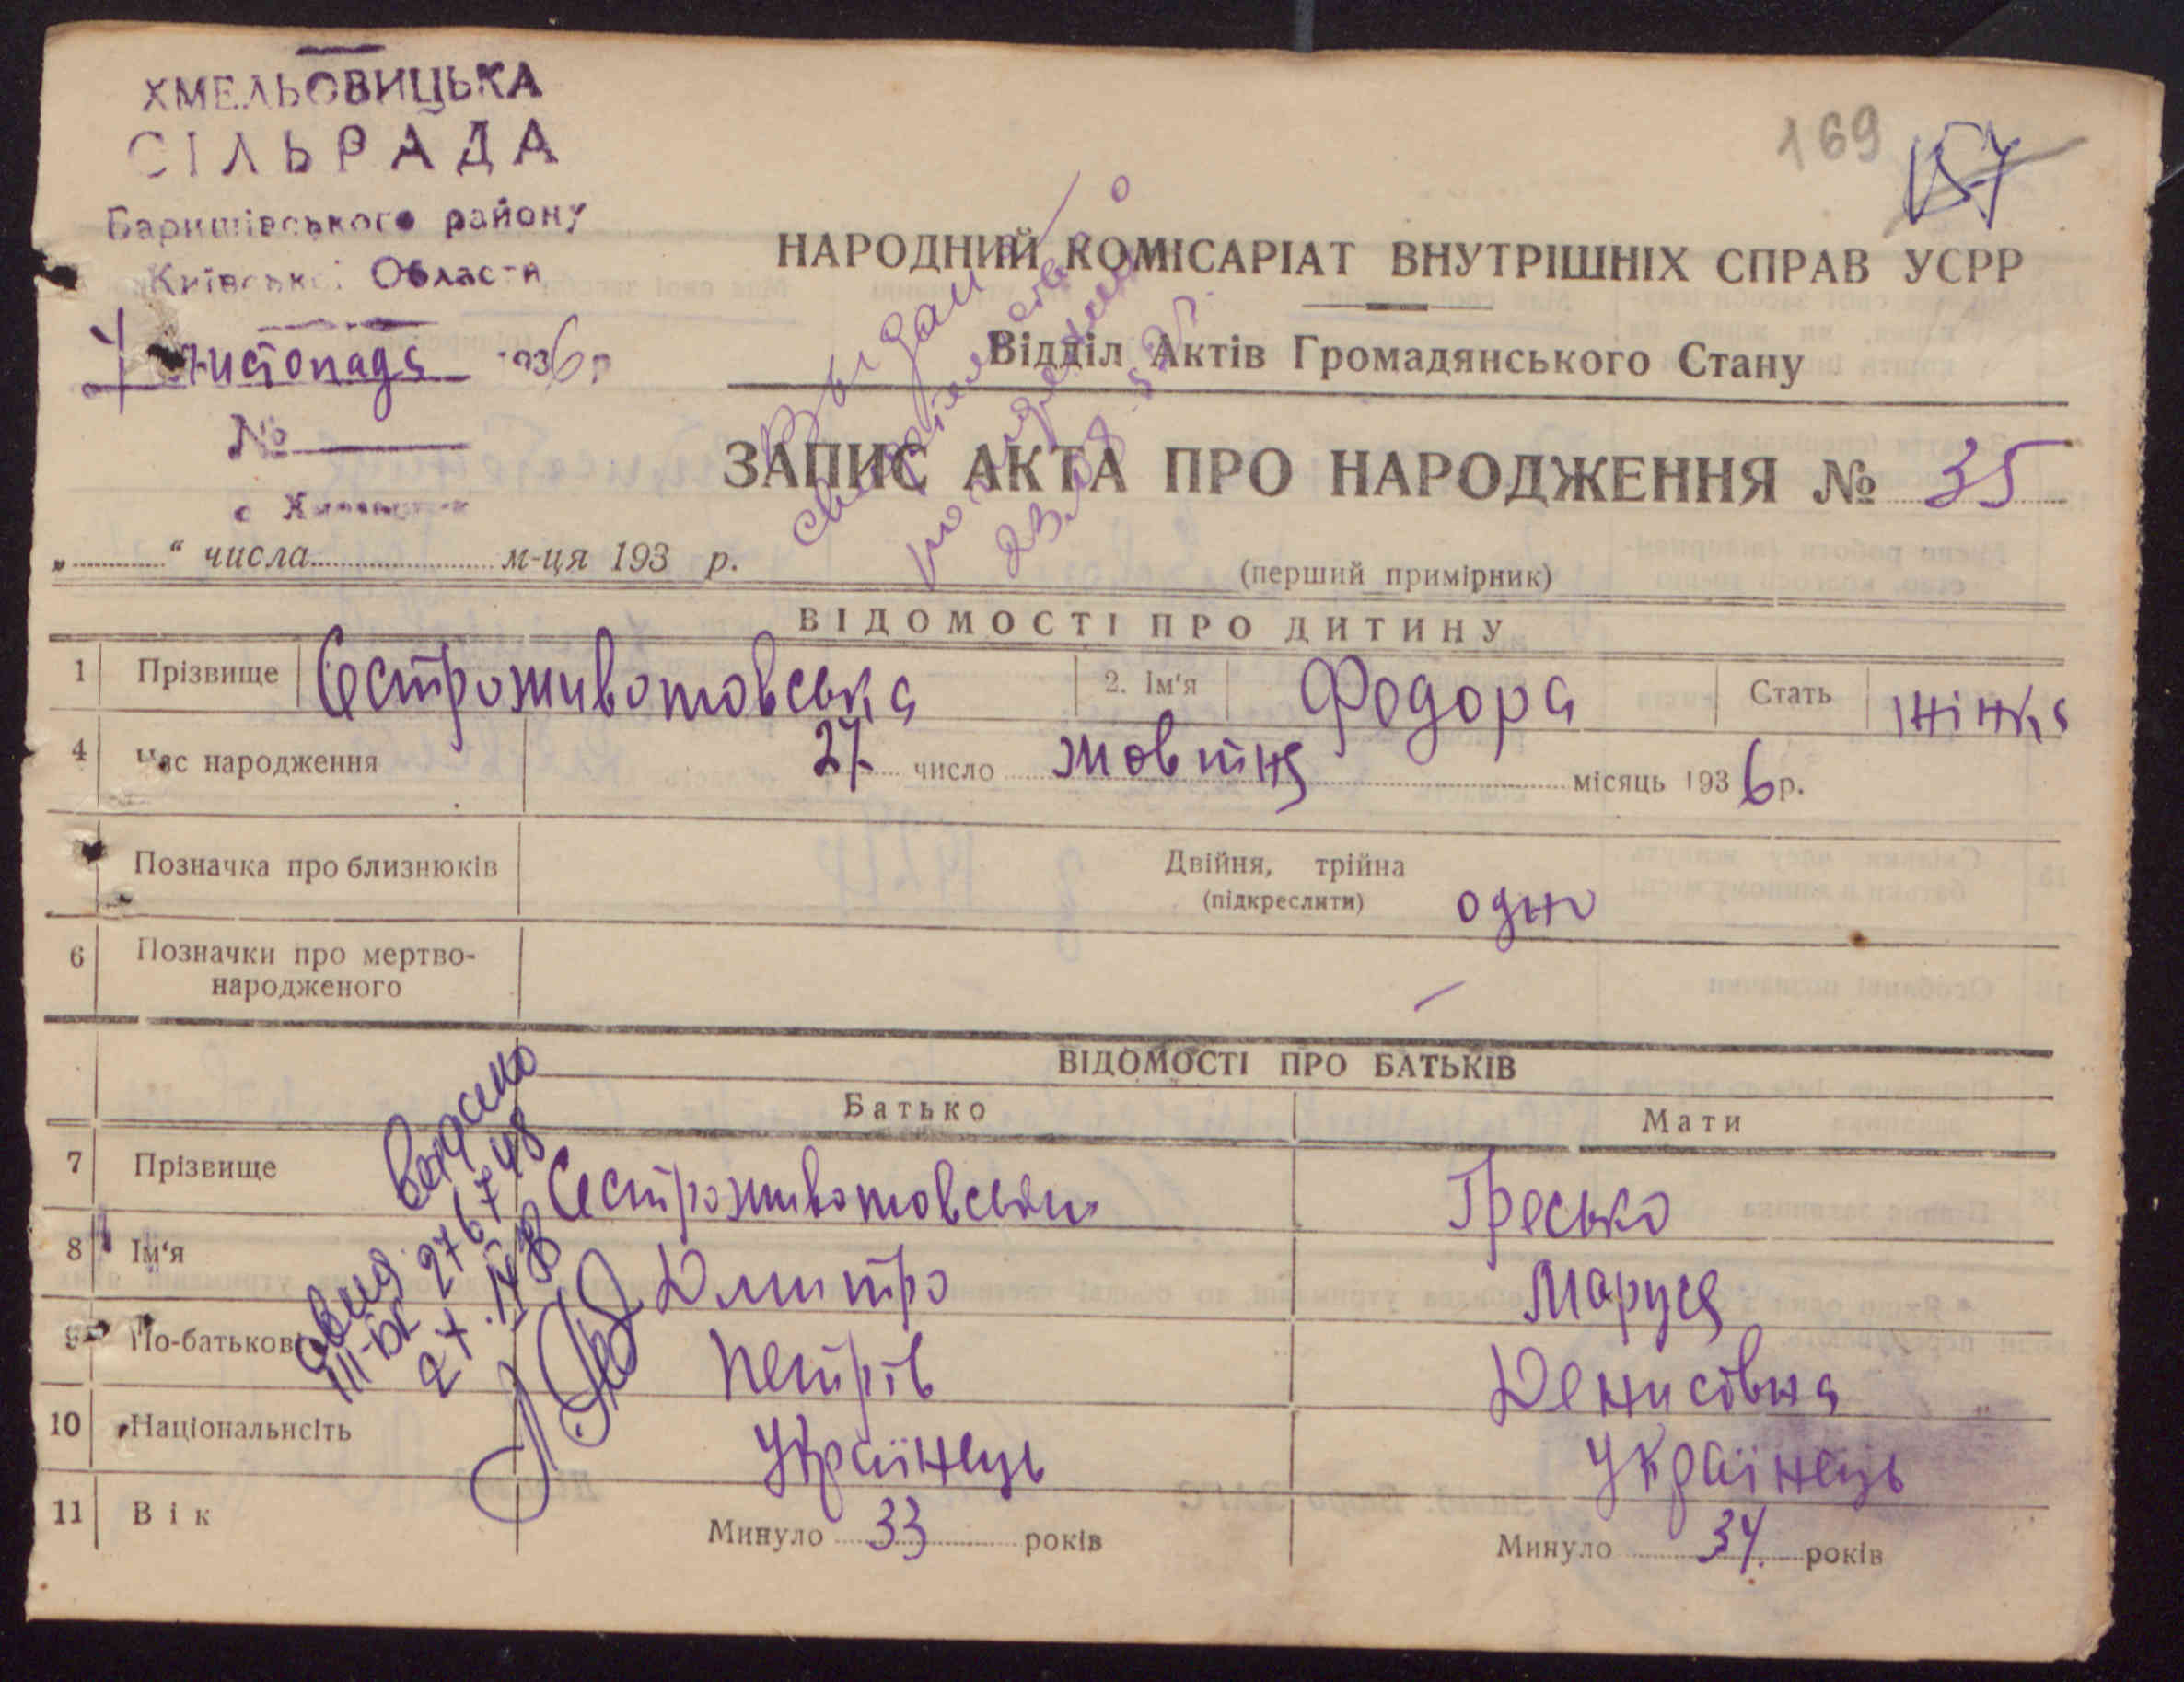 ХМЕЛЬОВИЦЬКА
СІЛЬРАДА
Баришівського району
Київської Области
7 листопада 1936 р
№
169
157
НАРОДНИЙ КОМІСАРІАТ ВНУТРІШНІХ СПРАВ УСРР
Відділ Актів Громадянського Стану
ЗАПИС АКТА ПРО НАРОДЖЕННЯ № 35
„ “ числа м-ця 193 р.
(перший примірник)
Выдан
ВІДОМОСТІ ПРО ДИТИНУ
1 Прізвище Сестроживотовська 2. Ім'я Федора Стать жінка
4 Час народження 27 число жовтня місяць 1936 р.
Позначка про близнюків Двійня, трійна
(підкреслити) одно
6 Позначки про мертво-
народженого —
ВІДОМОСТІ ПРО БАТЬКІВ
Батько Мати
7 Прізвище Сестроживотовськи Гресько
8 Ім'я Дмитро Маруся
9 По-батькові Петрів Денисовна
10 Національнсіть Українець Українець
11 Вік Минуло 33 років Минуло 34 років